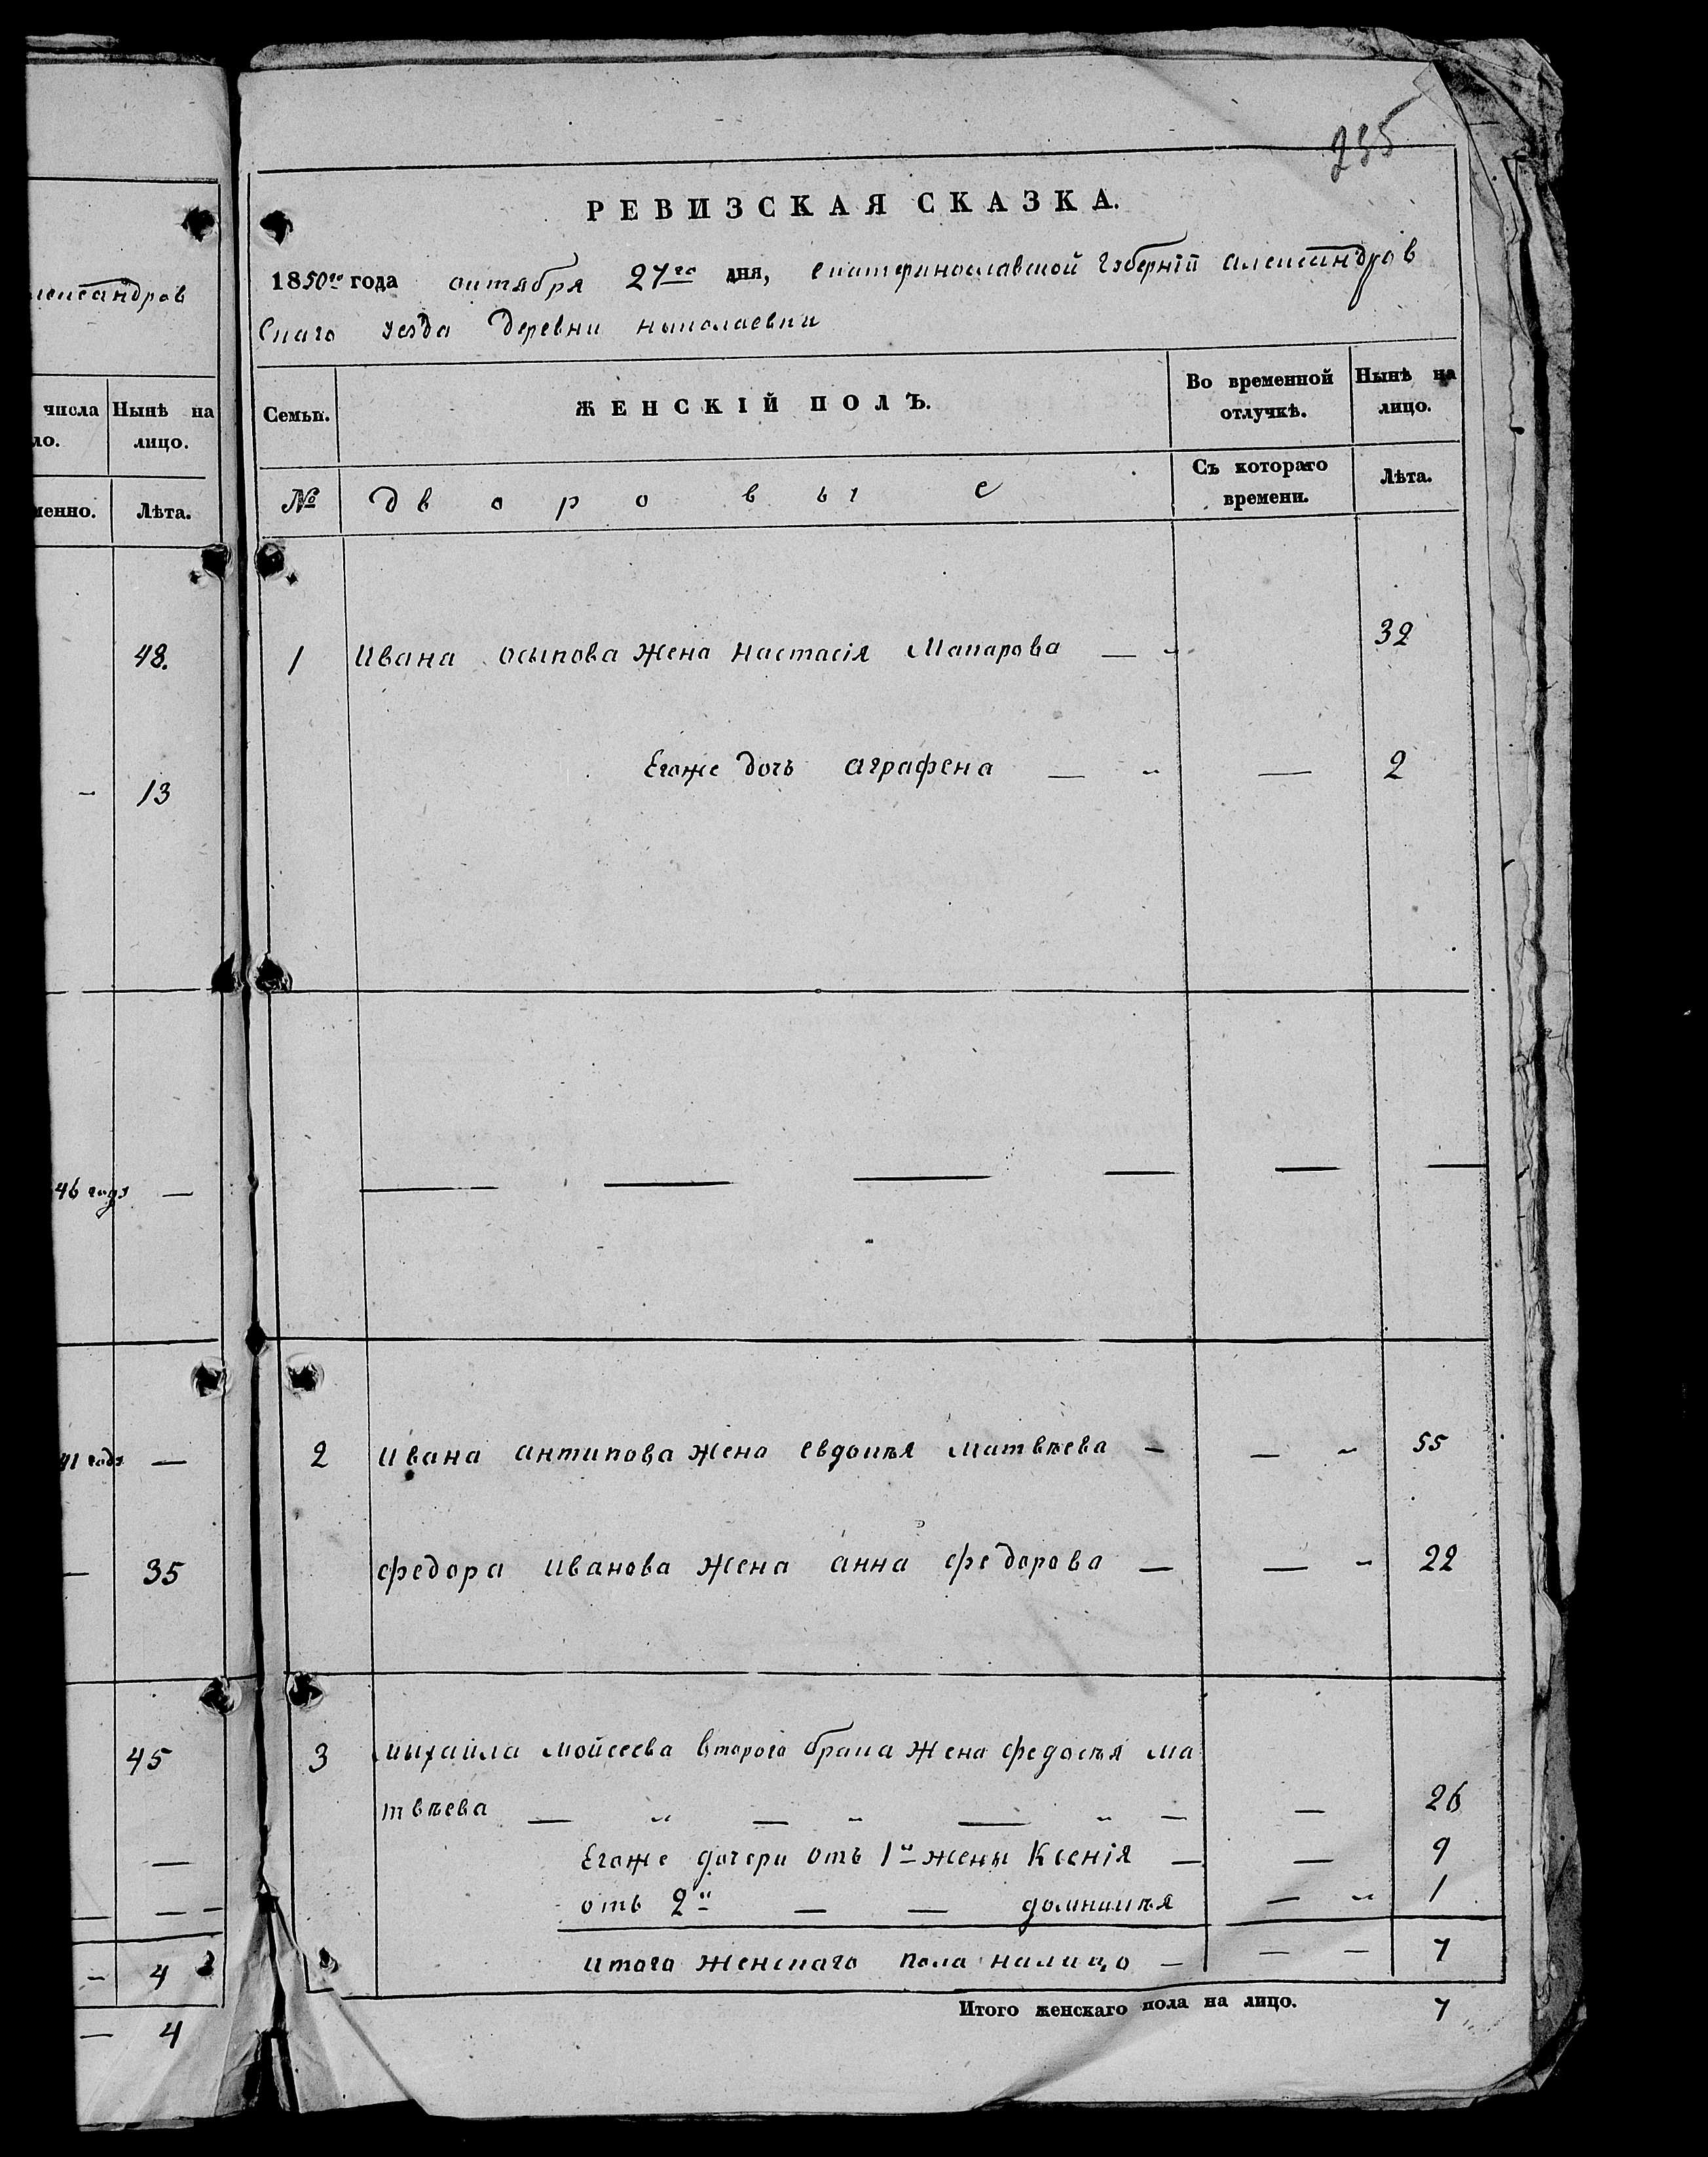 лександров
числа Нынѣ на
ло. лицо.
менно. Лѣта.
48.
13
46 года
41 года
35
45
4
4
235
РЕВИЗСКАЯ СКАЗКА.
1850го года октября 27го дня, екатеринославской губернiй александров
скаго уезда деревни николаевки
Семьи. ЖЕНСКІЙ ПОЛЪ. Во временной отлучкѣ. Нынѣ на лицо.
№ дворовые Съ котораго времени. Лѣта.
1 Ивана осыпова жена настасiя Макарова 32
Егоже дочь аграфена 2
2 ивана антипова жена евдокѣя матвѣева 55
федора иванова жена анна федорова 22
3 михайла мойсеева втораго брака жена федосѣя ма
твѣева 26
Егоже дочери отъ 1й жены Ксенiя 9
отъ 2й домникѣя 1
итого женскаго пола налицо 7
Итого женскаго пола на лицо. 7